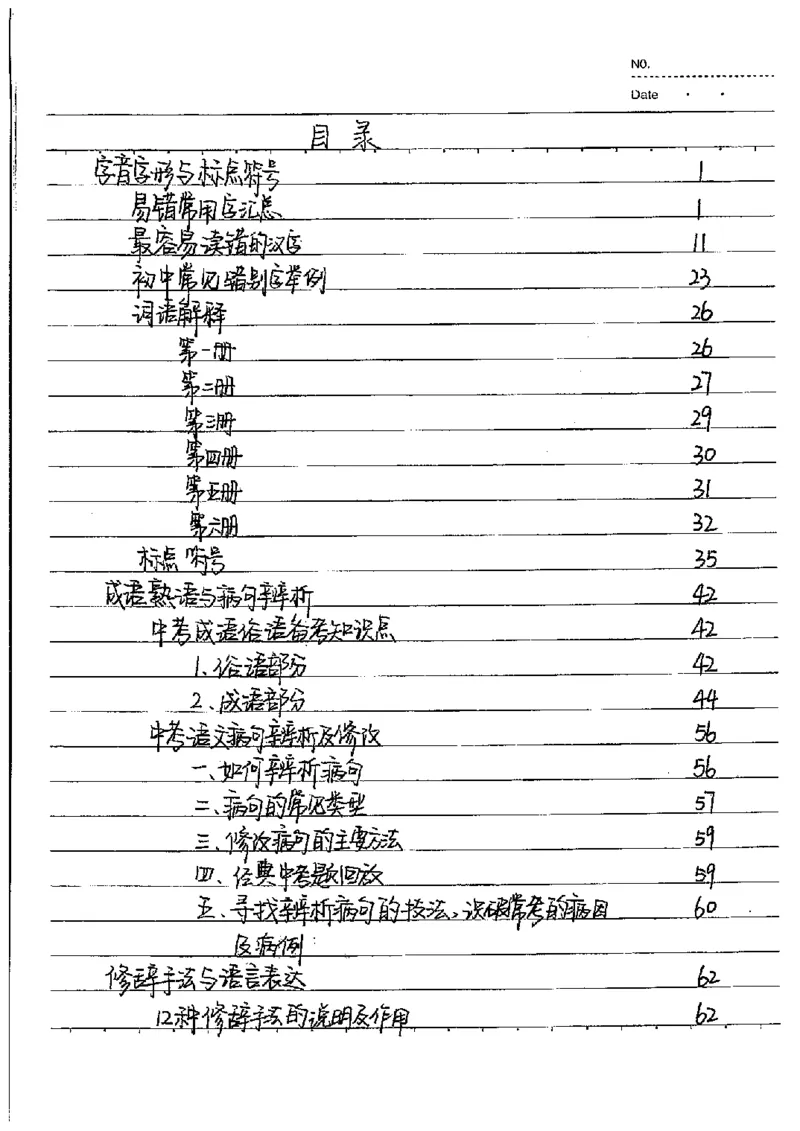 NO.
Date
目录
字音字形与标点符号 1
易错常用字汇总 1
最容易读错的汉字 11
初中常见错别字举例 23
词语解释 26
第一册 26
第二册 27
第三册 29
第四册 30
第五册 31
第六册 32
标点符号 35
成语熟语与病句辨析 42
中考成语俗语备考知识点 42
1、俗语部分 42
2、成语部分 44
中考语文病句辨析及修改 56
一、如何辨析病句 56
二、病句的常见类型 57
三、修改病句的主要方法 59
四、经典中考题回放 59
五、寻找辨析病句的技法,识破常考的病因 60
及病例
修辞手法与语言表达 62
12种修辞手法的说明及作用 62